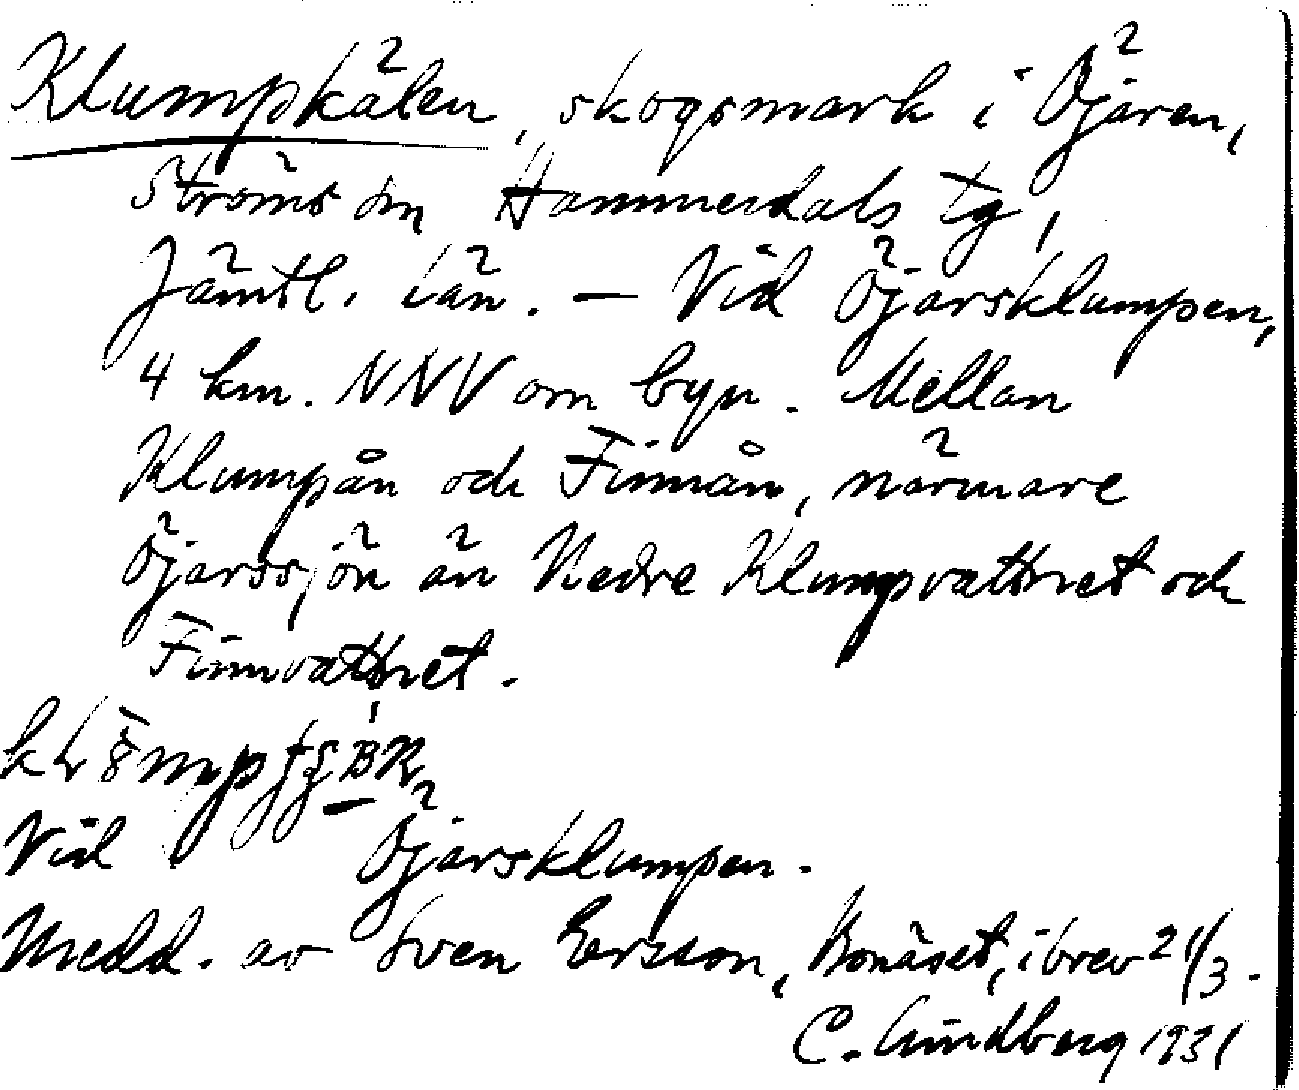 Klumpkälen, skogsmark i Öjaren,
Ströms sn Hammerdals tg,
Jämtl. län. — Vid Öjarsklumpen,
4 km. NNV om byn. Mellan
Klumpån och Finnån, närmare
Öjarssjön än Nedre Klumpvattnet och
Finnvattnet.
Vid Öjarsklumpen.
Medd. av Sven Ersson, Bonäset, i brev 21/3.
C. Lindberg 1931